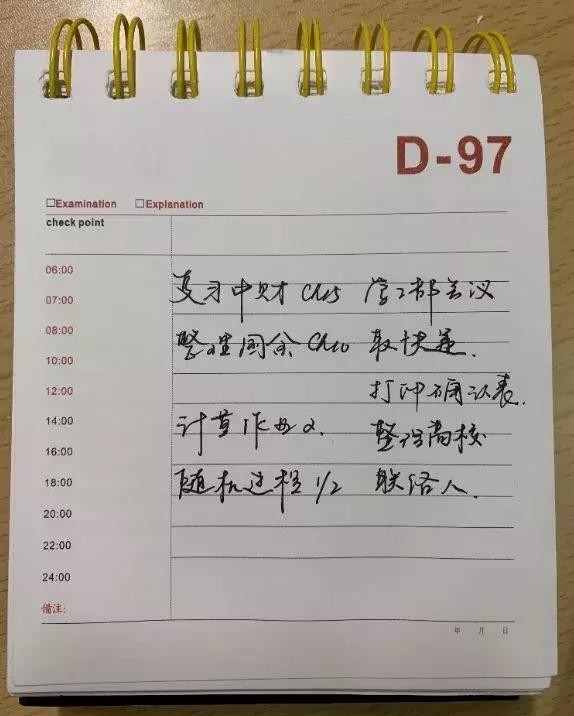 D-97
□Examination □Explanation
check point
06:00
07:00
08:00
10:00
12:00
14:00
16:00
18:00
20:00
22:00
24:00
复习中财 Ch5 学工部会议
整理国金 Ch10 取快递.
打印确认表.
计算作业2. 整理高校
随机过程 1/2 联络人.
備注:
年 月 日